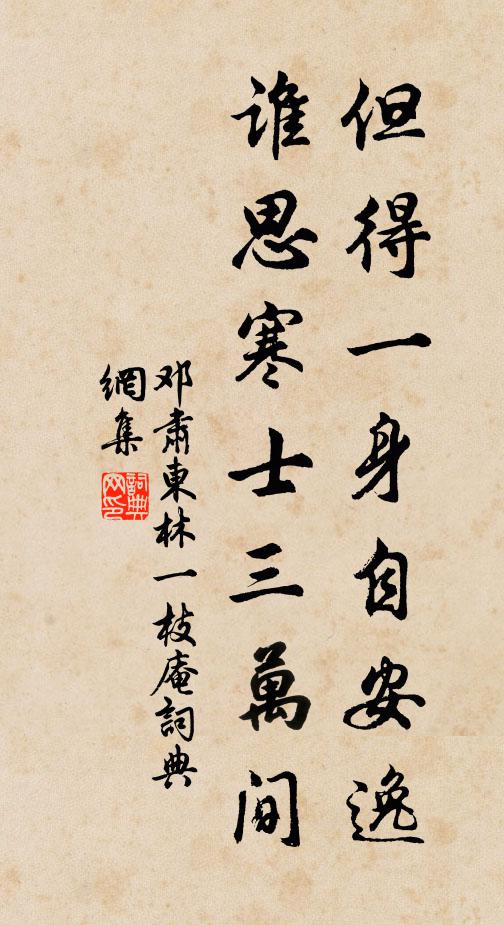 但得一身自安逸
谁思寒士三萬间
邓肅東林一枝庵詞典
網集
詞典
网印